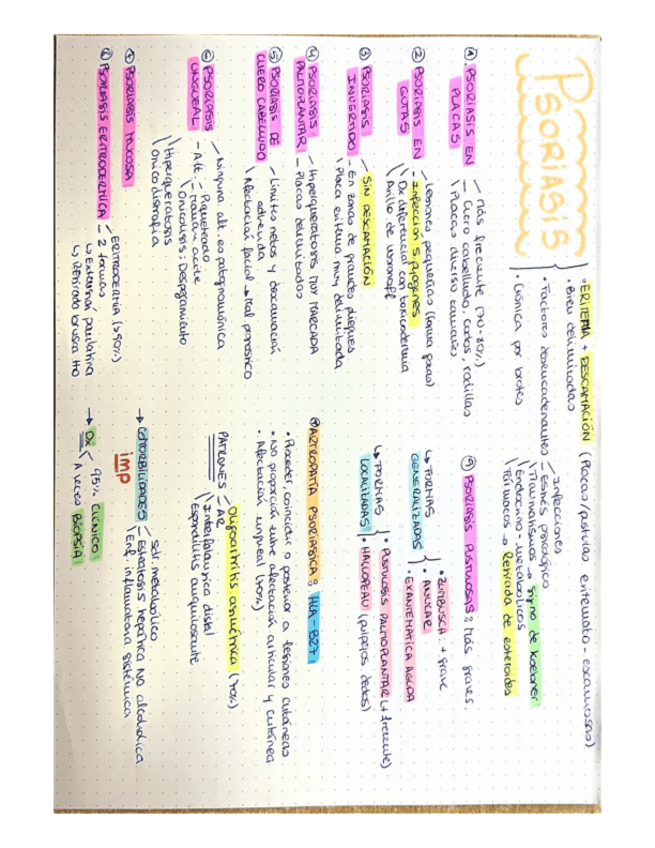 PSORIASIS
• ERITEMA + DESCAMACIÓN (Placas/pústulas eritemato-escamosas)
• Bien delimitadas
• Factores desencadenantes - Infecciones
- Estrés psicológico
Traumatismos → Signo de Koebner
Endocrino-metabólicos
Fármacos → Retirada de esteroides
• Crónica por brotes
① PSORIASIS EN PLACAS
- Más frecuente (70-80%)
- Cuero cabelludo, codos, rodillas
Placas diverso tamaño
② PSORIASIS EN GOTAS
- Lesiones pequeñas (forma gotas)
- Infección S. pyogenes
Dx diferencial con toxicodermia
Anillo de Woronoff
③ PSORIASIS INVERTIDO
- SIN DESCAMACIÓN
En zonas de grandes pliegues
Placa eritema muy delimitada
④ PSORIASIS PALMOPLANTAR
- Hiperqueratosis MUY MARCADA
- Placas delimitadas
⑤ PSORIASIS DE CUERO CABELLUDO
- Límites netos y descamación adherida
Afectación facial → Mal pronóstico
⑥ PSORIASIS UNGUEAL
- Ninguna alt. es patognomónica
- Alt. - Piqueteado
- Mancha aceite
Onicolisis: Despegamiento
Hiperqueratosis
Onicodistrofia
⑦ PSORIASIS MUCOSA
⑧ PSORIASIS ERITRODÉRMICA
- ERITRODERMIA (>90%)
- 2 formas
↳ Extensión paulatina
↳ Retirada brusca tto
⑨ PSORIASIS PUSTULOSAS: Más graves.
↳ FORMAS GENERALIZADAS
• ZUMBUSCH: + grave
• ANULAR
• EXANTEMÁTICA AGUDA
↳ FORMAS LOCALIZADAS
• PUSTULOSIS PALMOPLANTAR (+ frecuente)
• HALLOPEAU (pulpejos dedos)
ARTROPATÍA PSORIÁSICA: HLA-B27
• Preceder, coincidir o posterior a lesiones cutáneas
• No proporción entre afectación articular y cutánea
• Afectación ungueal (70%)
PATRONES
Oligoartritis asimétrica (70%)
- AR
Interfalángica distal
Espondilitis anquilosante
→ COMORBILIDADES
imp
Sd metabólico
Esteatosis hepática no alcohólica
Enf. inflamatoria sistémica
→ Dx
95% CLÍNICO
A veces BIOPSIA